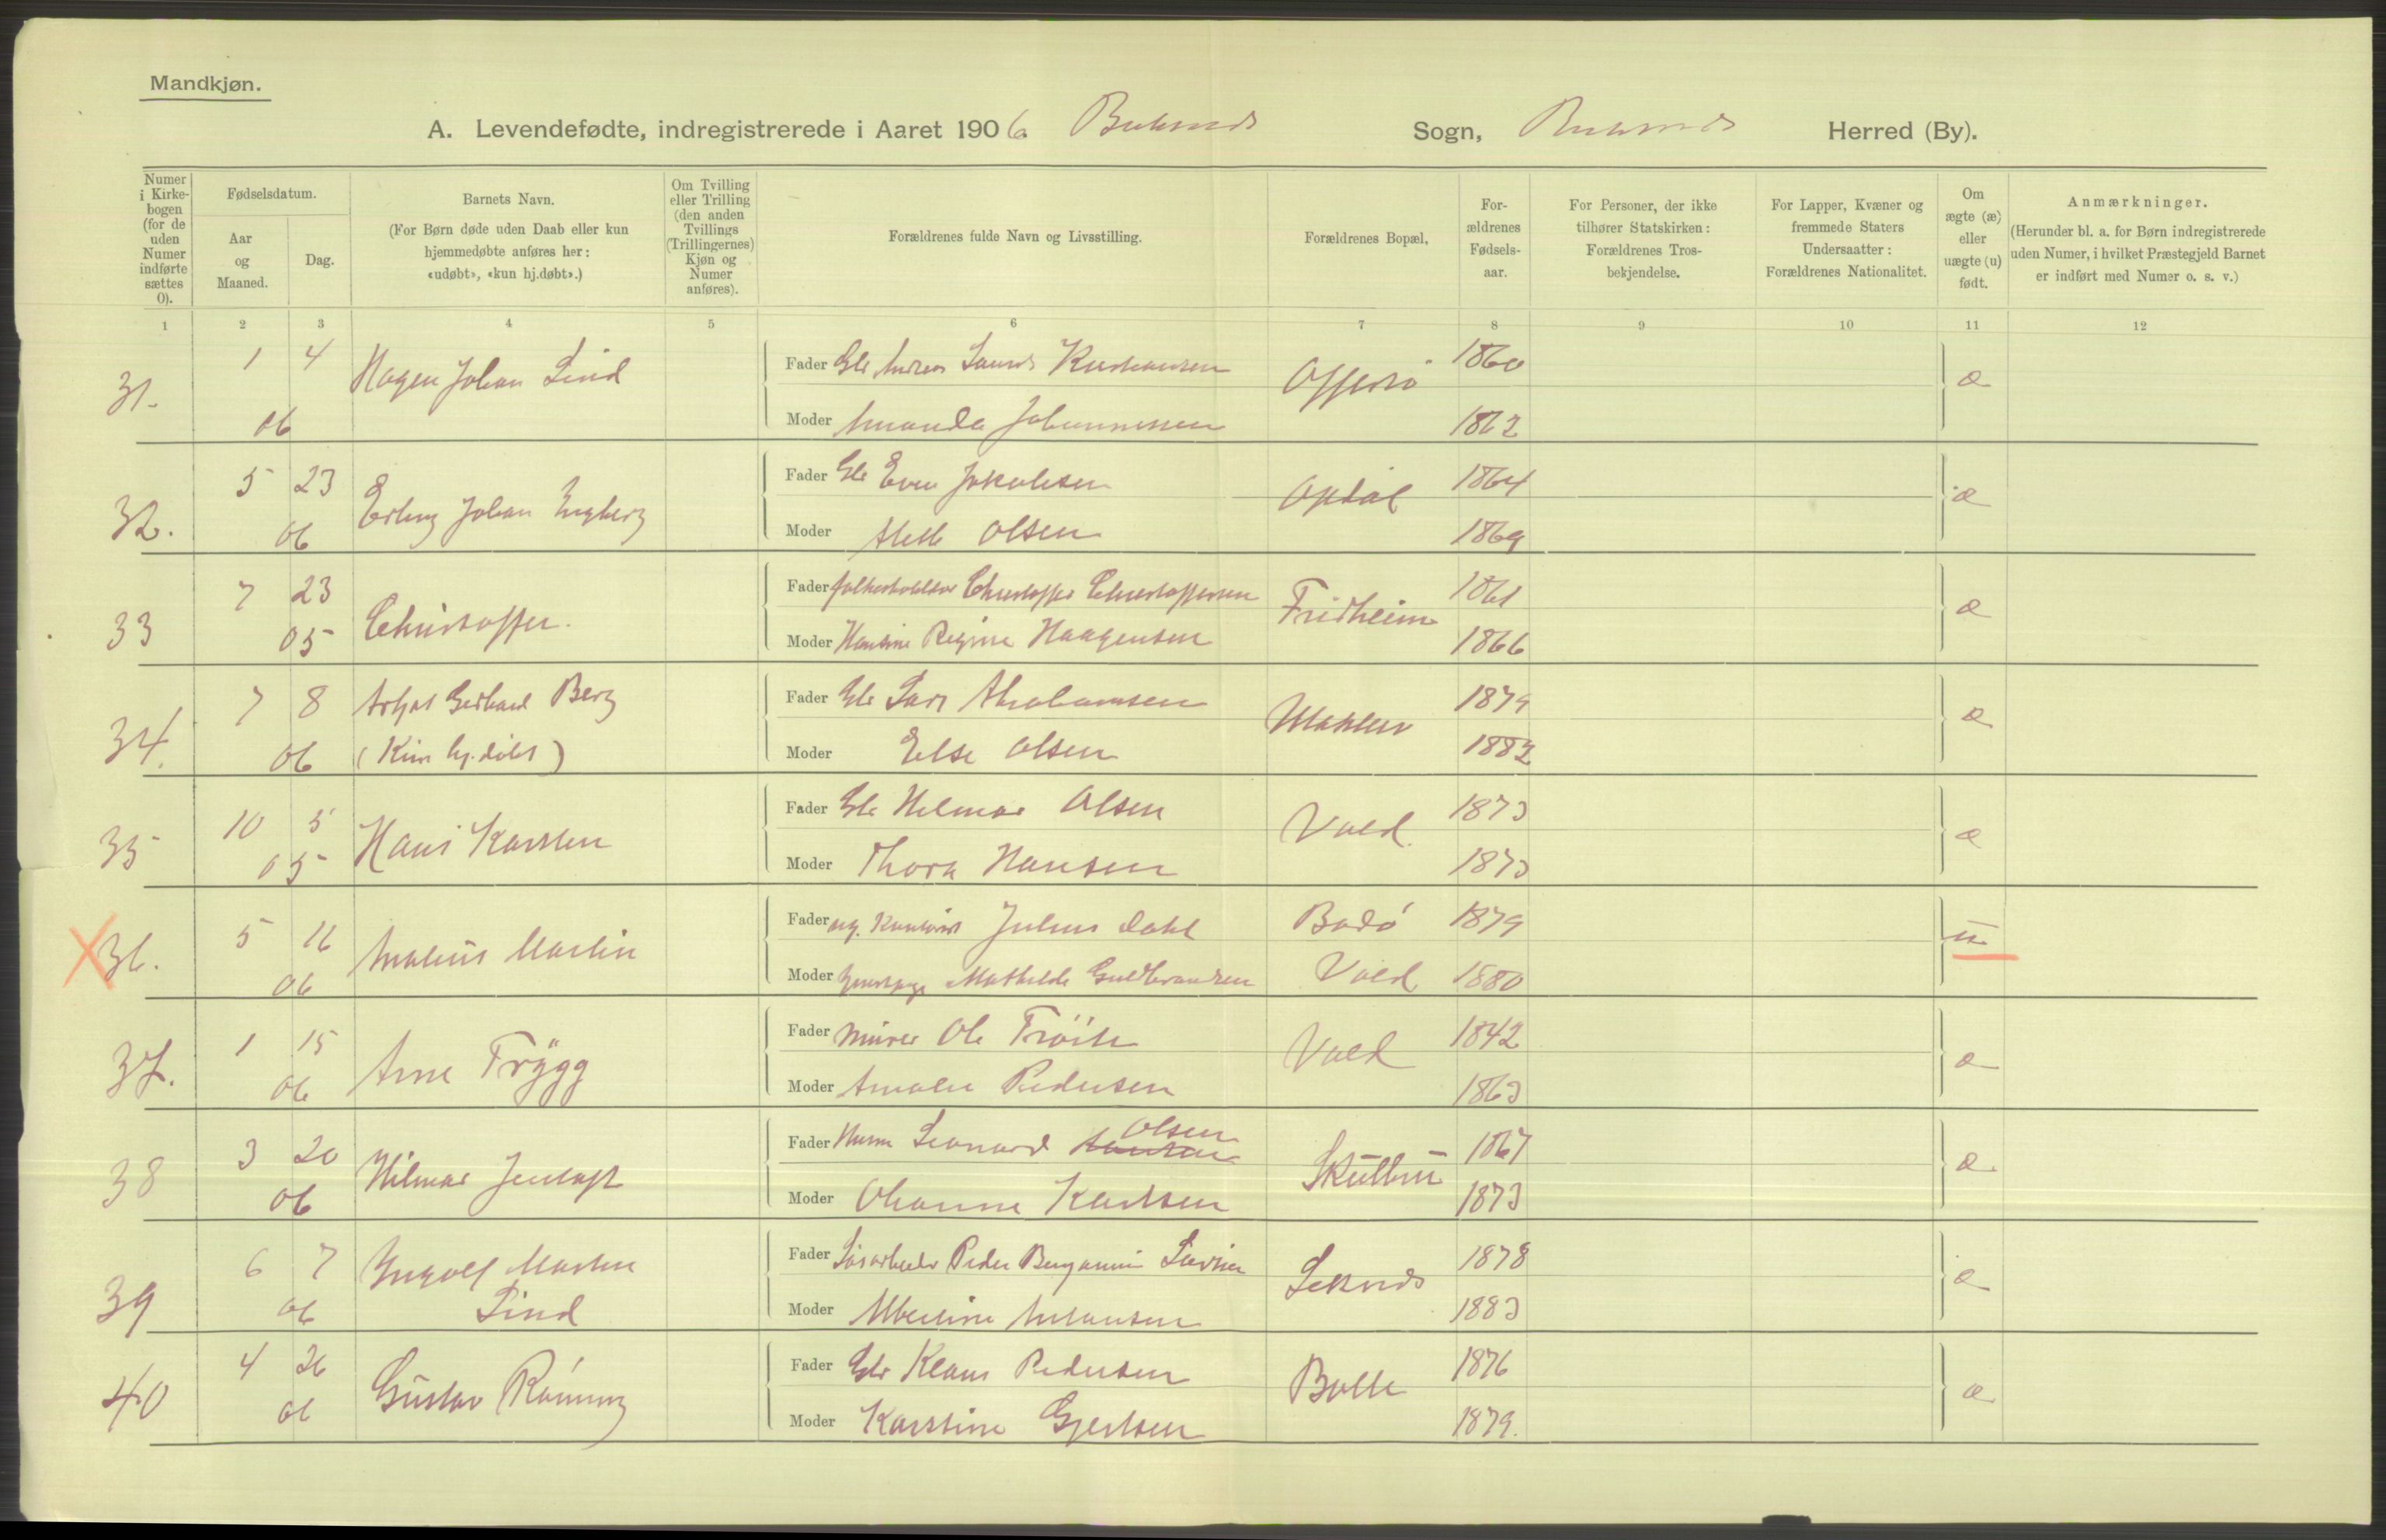 Mandkjøn.
A. Levendefødte, indregistrerede i Aaret 1906 Buksnes Sogn, Buksnes Herred (By).
Numer i Kirke-bogen (for de uden Numer indførte sættes 0).
Fødselsdatum.
Aar og Maaned.
Dag.
Barnets Navn.
(For Børn døde uden Daab eller kun hjemmedøbte anføres her: «udøbt», «kun hj.døbt».)
Om Tvilling eller Trilling (den anden Tvillings (Trillingernes) Kjøn og Numer anføres).
Forældrenes fulde Navn og Livsstilling.
Forældrenes Bopæl,
For-ældrenes Fødsels-aar.
For Personer, der ikke tilhører Statskirken: Forældrenes Tros-bekjendelse.
For Lapper, Kvæner og fremmede Staters Undersaatter: Forældrenes Nationalitet.
Om ægte (æ) eller uægte (u) født.
Anmærkninger.
(Herunder bl. a. for Børn indregistrerede uden Numer, i hvilket Præstegjeld Barnet er indført med Numer o. s. v.)
1 2 3 4 5 6 7 8 9 10 11 12
31. 1 4 06 Hagen Johan Lind
Fader Gbr Andreas Kristiansen 1860 æ
Moder Amanda Johannessen 1862
32. 5 23 06 Erling Johan Ingberg
Fader Gbr Even Jakobsen Opdal 1864 æ
Moder Olsen 1869
33 7 23 05 Christoffer.
Fader Christoffer Christoffersen Fridheim 1861 æ
Moder Hansine Regine Haagensen 1866
34. 7 8 06 Gerhard Berg
(Kun hj.døbt)
Fader Gbr Lars Abrahamsen 1879 æ
Moder Else Olsen 1882
35 10 5 05 Hans Karsten
Fader Gbr Hilmar Olsen Vold. 1873 æ
Moder Thora Hansen 1873
36. 5 16 06 Martin
Fader ug. Julius Dahl Bodø 1879 u
Moder Mathilde Guldbrandsen Vold 1880
37. 1 15 06 Arne Trygg
Fader Murer Ole Vold 1842 æ
Moder Amalie Pedersen 1863
38 3 20 06 Hilmar Jentoft
Fader Leonard Olsen 1867 æ
Moder Ohanna Karlsen 1873
39 6 7 06 Ingolf Martin
Lind
Fader Peder Benjamin Leknes 1878 æ
Moder Albertine Johansen 1883
40 4 26 06 Gustav Rønning
Fader Gbr Klaus Pedersen Bolle 1876 æ
Moder Karstine Gjertsen 1879.